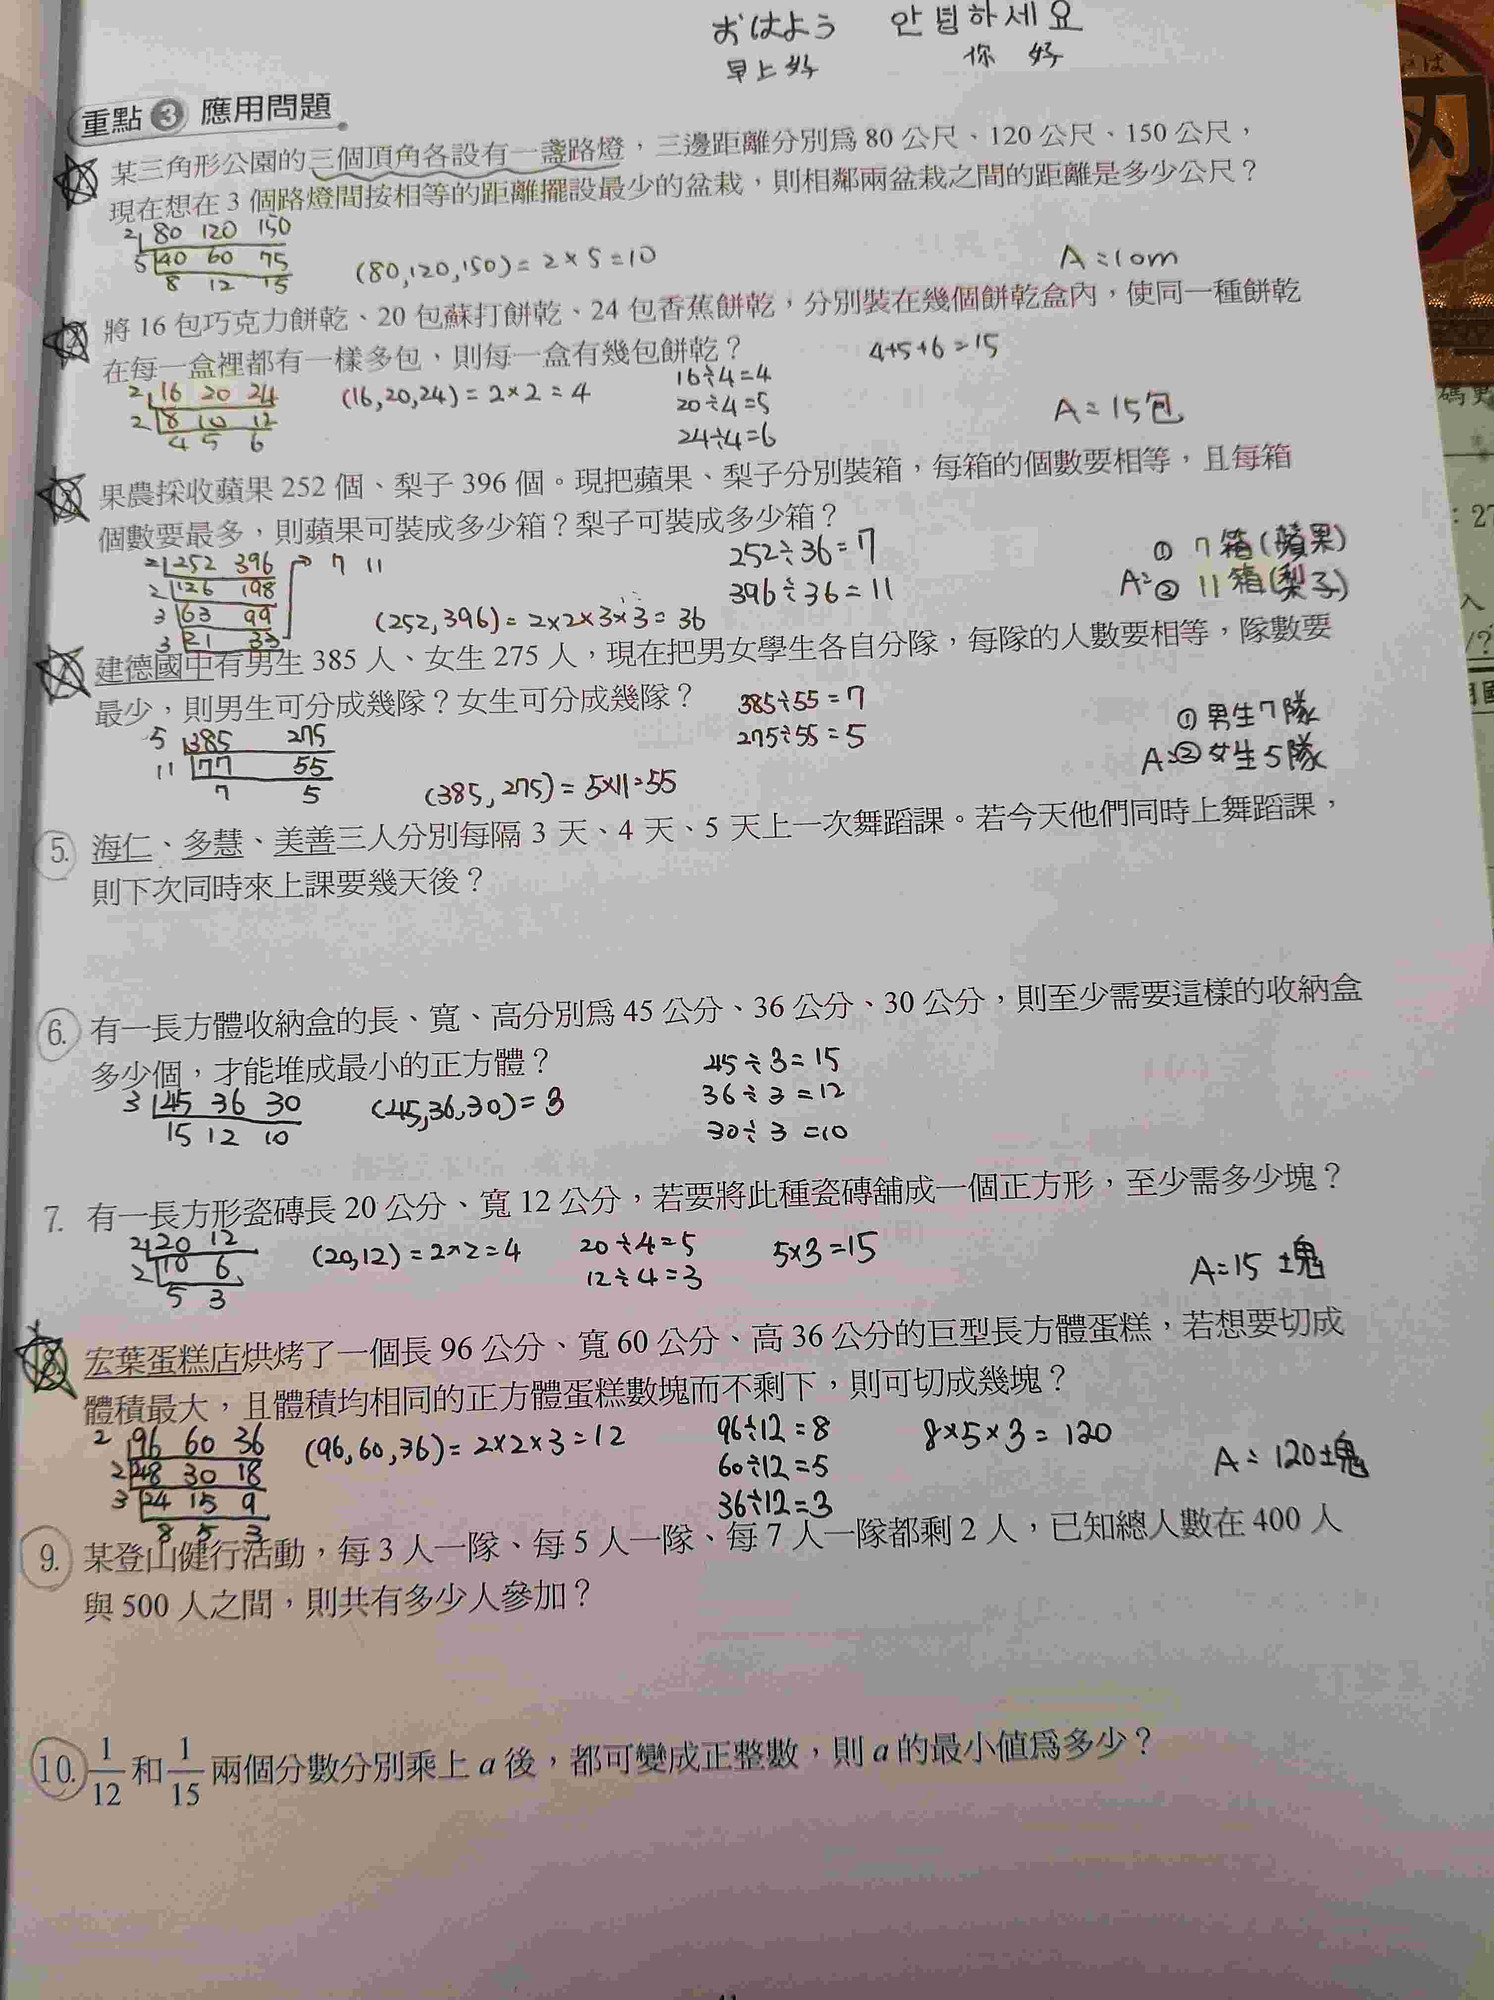 おはよう 안녕하세요
早上好 你 好
重點 3 應用問題
某三角形公園的三個頂角各設有一盞路燈，三邊距離分別爲 80 公尺、120 公尺、150 公尺，
現在想在 3 個路燈間按相等的距離擺設最少的盆栽，則相鄰兩盆栽之間的距離是多少公尺？
2 80 120 150
5 40 60 75
8 12 15
(80,120,150)=2×5=10
A=10m
將 16 包巧克力餅乾、20 包蘇打餅乾、24 包香蕉餅乾，分別裝在幾個餅乾盒內，使同一種餅乾
在每一盒裡都有一樣多包，則每一盒有幾包餅乾？
4+5+6=15
2 16 20 24
2 8 10 12
4 5 6
(16,20,24)=2×2=4
16÷4=4
20÷4=5
24÷4=6
A=15包
果農採收蘋果 252 個、梨子 396 個。現把蘋果、梨子分別裝箱，每箱的個數要相等，且每箱
個數要最多，則蘋果可裝成多少箱？梨子可裝成多少箱？
2 252 396 7 11
2 126 198
3 63 99
3 21 33
(252,396)=2×2×3×3=36
252÷36=7
396÷36=11
① 7箱(蘋果)
A: ② 11箱(梨子)
建德國中有男生 385 人、女生 275 人，現在把男女學生各自分隊，每隊的人數要相等，隊數要
最少，則男生可分成幾隊？女生可分成幾隊？
5 385 275
11 77 55
7 5
(385,275)=5×11=55
385÷55=7
275÷55=5
①男生7隊
A:②女生5隊
5. 海仁、多慧、美善三人分別每隔 3 天、4 天、5 天上一次舞蹈課。若今天他們同時上舞蹈課，
則下次同時來上課要幾天後？
6. 有一長方體收納盒的長、寬、高分別爲 45 公分、36 公分、30 公分，則至少需要這樣的收納盒
多少個，才能堆成最小的正方體？
3 45 36 30
15 12 10
(45,36,30)=3
45÷3=15
36÷3=12
30÷3=10
7. 有一長方形瓷磚長 20 公分、寬 12 公分，若要將此種瓷磚舖成一個正方形，至少需多少塊？
2 20 12
2 10 6
5 3
(20,12)=2×2=4
20÷4=5
12÷4=3
5×3=15
A=15 塊
8. 宏葉蛋糕店烘烤了一個長 96 公分、寬 60 公分、高 36 公分的巨型長方體蛋糕，若想要切成
體積最大，且體積均相同的正方體蛋糕數塊而不剩下，則可切成幾塊？
2 96 60 36
2 48 30 18
3 24 15 9
8 5 3
(96,60,36)=2×2×3=12
96÷12=8
60÷12=5
36÷12=3
8×5×3=120
A=120塊
9. 某登山健行活動，每 3 人一隊、每 5 人一隊、每 7 人一隊都剩 2 人，已知總人數在 400 人
與 500 人之間，則共有多少人參加？
10. 1/12 和 1/15 兩個分數分別乘上 a 後，都可變成正整數，則 a 的最小值爲多少？